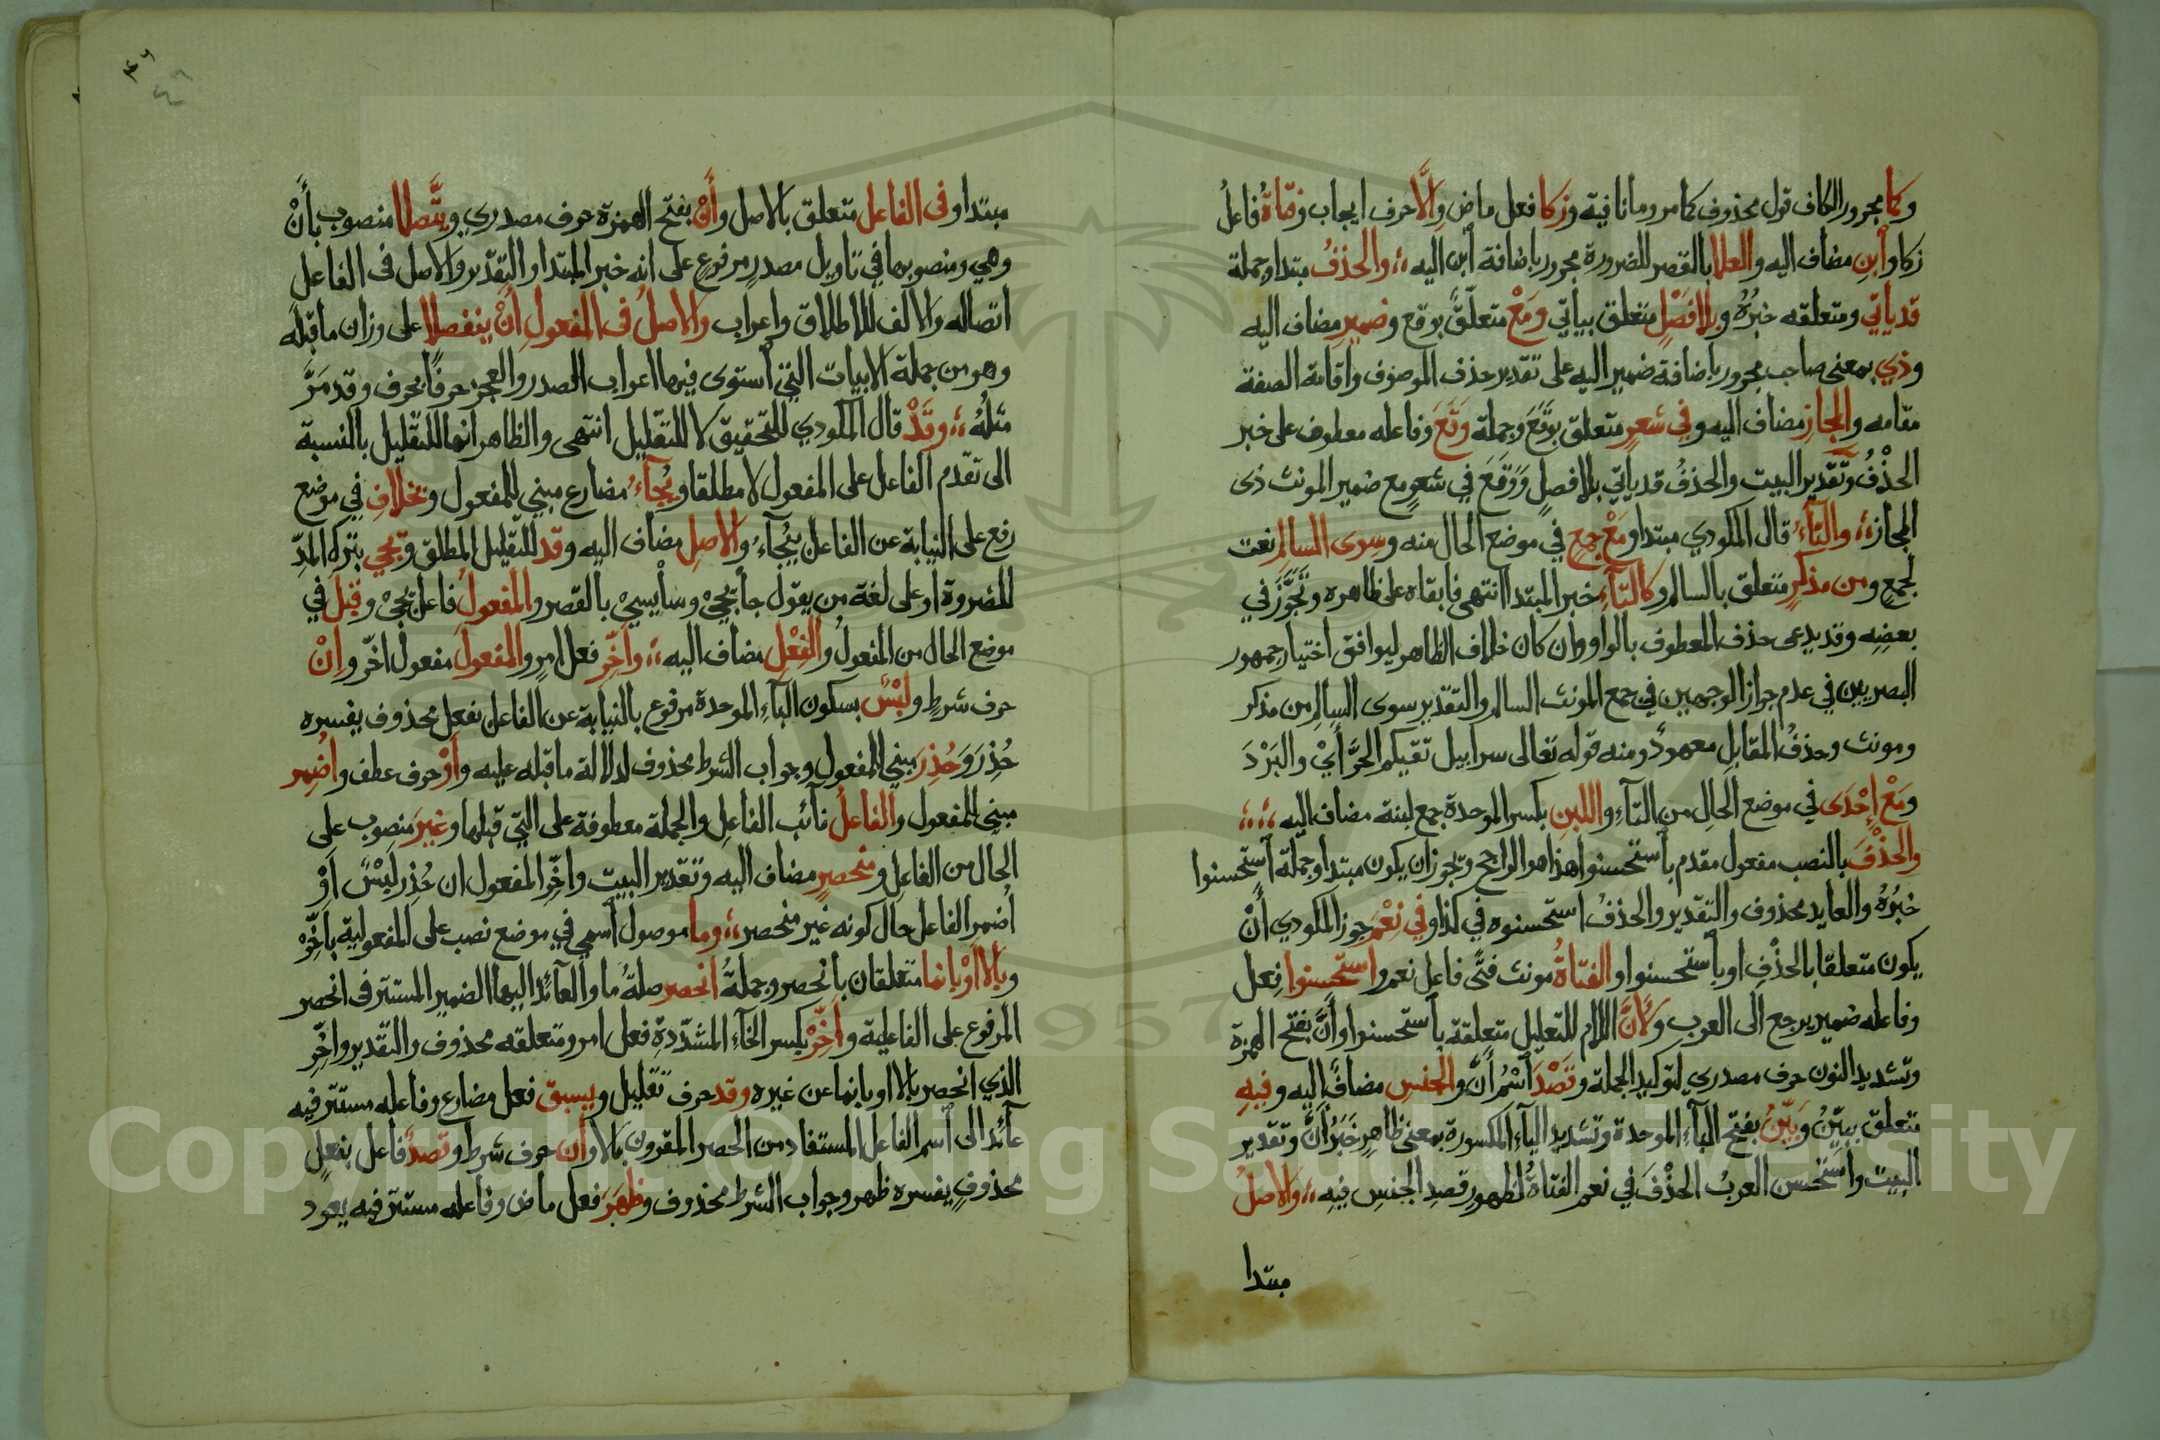 وكما مجرور الكاف قول محذوف كما مر وما نافية وزكا فعل ماض والّا حرف ايجاب وفتاةُ فاعلُ
زكا وابنِ مضاف اليه والعلا بالقصر للضرورة مجرور باضافة ابن اليه ،، والحذفُ مبتدا وجملة
قد ياتي ومتعلقه خبرُهُ وبلا فصْلٍ متعلق بياتي ومَعْ متعلقٌ بوقع وضميرِ مضاف اليه
وذي بمعنى صاحب مجرور باضافة ضمير اليه على تقدير حذف الموصوف واقامة الصفة
مقامه والمجازِ مضاف اليه وفي شعرٍ متعلق بوَقَعَ وجملة وَقَعَ وفاعله معطوف على خبر
الحذْفُ وتقدير البيت والحذفُ قد ياتي بلا فصلٍ وَوَقَعَ في شعرٍ مع ضمير المونث ذى
المجاز ،، والتآءُ قال المكودي مبتدا ومَعْ جمعٍ في موضع الحال منه وسوى السالمِ نعت
لجمعٍ ومن مذكرٍ متعلق بالسالم وكالتآءِ خبر المبتدا انتهى فابقاه على ظاهره وتجوَّزَ في
بعضِهِ وقد يدعى حذف المعطوف بالواو وان كان خلاف الظاهر ليوافق اختيار جمهور
البصريين في عدم جواز الوجهين في جمع المونث السالم والتقدير سوى السالمِ من مذكر
ومونث وحذفُ المقابلِ معهودٌ ومنه قوله تعالى سرابيل تقيكم الحَرَّ أَيْ والبَرْدَ
ومَعْ إحْدَى في موضع الحالِ من التآءِ واللبن بكسر الموحدة جمع لبنة مضاف اليه ،،
والحذْفَ بالنصب مفعول مقدم باستحسنوا هذا هو الراجح وتجوز ان يكون مبتدا وجملة استحسنوا
خبرُهُ والعايد محذوف والتقدير والحذفُ استحسنوه في كذا وفي نِعْمَ جوز المكودي أنْ
يكون متعلقا بالحذْفِ او باستحسنوا والفتاةُ مونث فتًى فاعل نعم واستحسنوا فعل
وفاعله ضمير يرجع الى العرب ولأنَّ اللام للتعليل متعلقة باستحسنوا وأنَّ بفتح الهمزة
وتشديد النون حرف مصدري لتوكيد الجملة وقَصْدَ اسْمُ أنَّ والجنسِ مضافٌ اليه وفيهِ
متعلق ببَيّنٌ وَبَيّنٌ بفتح البآءِ الموحدة وتشديد اليآءِ المكسورة بمعنى ظاهرٍ خبرُ أنَّ وتقدير
البيت واستحسن العربُ الحذْفَ في نعم الفتاةُ لظهورِ قصدِ الجنسِ فيه ،، والاصلُ
مبتدا
مبتدا وفى الفاعل متعلق بالاصل وأنْ بفتح الهمزة حرف مصدري ويتّصلا منصوب بأنْ
وهي ومنصوبها في تاويل مصدر مرفوع على انه خبر المبتدا والتقدير والاصل فى الفاعل
اتصاله والالف للاطلاق واعراب والاصلُ فى المفعول أنْ ينفصلا على وزان ما قبله
وهو من جملة الابيات التي استوى فيها اعراب الصدر والعجز حرفًا بحرف وقد مَرَّ
مثلُهُ ،، وقَدْ قال المكودي للتحقيق لا للتقليل انتهى والظاهر انها للتقليل بالنسبة
الى تقدّم الفاعل على المفعول لا مطلقا ويُجآءُ مضارع مبني للمفعول وبخلافِ في موضع
رفع على النيابة عن الفاعل بيُجآءُ والاصلِ مضاف اليه وقد للتقليل المطلق وبجي بترك المدّ
للضروة او على لغة من يقول جا بجيْ وسا يسيْ بالقصر والمفعولُ فاعل بجيْ وقبلَ في
موضع الحال من المفعولُ والفِعْلِ مضاف اليه ،، واخِّر فعل امر والمفعولَ مفعول اخّر وانْ
حرف شرطٍ ولَبْسٌ بسكون البآءِ الموحدة مرفوع بالنيابة عن الفاعل بفعل محذوف يفسره
حُذِرَ وَحُذِرَ مبني للمفعول وجواب الشرط محذوف لدلالة ما قبله عليه وأوْ حرف عطف واُضْمِر
مبني للمفعول والفاعلُ نآئب الفاعل والجملة معطوفة على التي قبلها وغيرَ منصوب على
الحال من الفاعل ومنحصرٍ مضاف اليه وتقدير البيت واخِّر المفعول ان حُذِر لَبْسٌ أوْ
اُضمر الفاعل حال كونه غير منحصر ،، وما موصول اسمي في موضع نصب على المفعولية باخّرْ
وبالّا اوْ بانما متعلقان بانحصر وجملةُ انحصر صلةُ ما والعآئد اليها الضمير المستتر فى انحصر
المرفوع على الفاعلية واخِّرْ بكسر الخآءِ المشدّدةِ فعل امر ومتعلقه محذوف والتقدير واخِّرِ
الذي انحصر بالا او بانما عن غيره وقد حرف تقليل ويسبق فعل مضارع وفاعله مستتر فيه
عآئد الى اسم الفاعل المستفاد من الحصر المقرون بالا وان حرف شرط وقصدٌ فاعل بفعلٍ
محذوفٍ يفسره ظهر وجواب الشرط محذوف وظهَرَ فعل ماض وفاعله مستتر فيه يعود
٤٦
٤٦
1957
Copyright © King Saud University